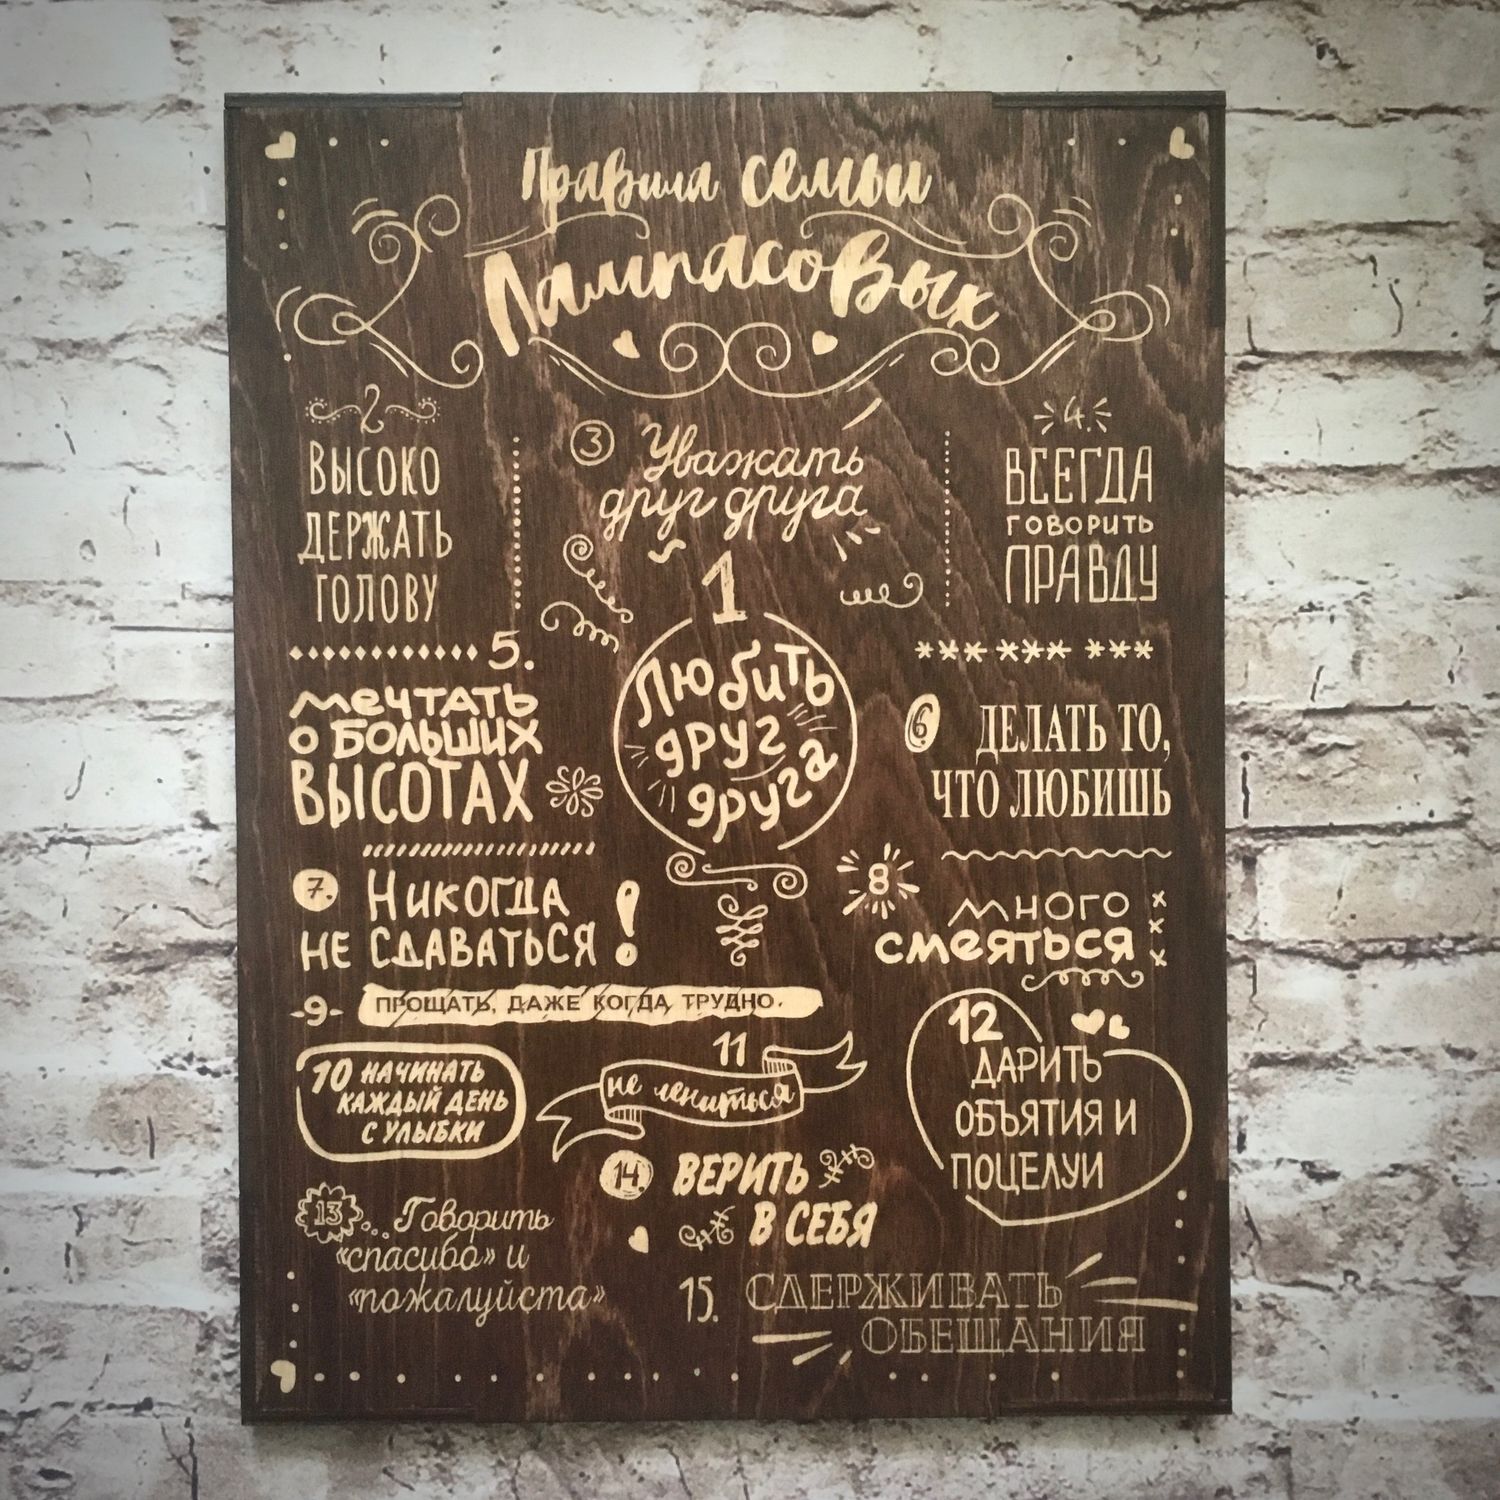 Правила семьи
Лампасовых
2
ВЫСОКО
ДЕРЖАТЬ
ГОЛОВУ
3 Уважать
друг друга
4.
ВСЕГДА
ГОВОРИТЬ
ПРАВДУ
1
Любить
друг
друга
5.
мечтать
о большиХ
ВЫСОТАХ
6 ДЕЛАТЬ ТО,
ЧТО ЛЮБИШЬ
7. НИКОГДА
НЕ СДАВАТЬСЯ!
8
много
смеяться
-9- ПРОЩАТЬ, ДАЖЕ КОГДА ТРУДНО.
10 НАЧИНАТЬ
КАЖДЫЙ ДЕНЬ
С УЛЫБКИ
11
не лениться
12
ДАРИТЬ
ОБЪЯТИЯ И
ПОЦЕЛУИ
13... Говорить
«спасибо» и
«пожалуйста»
14 ВЕРИТЬ
В СЕБЯ
15. СДЕРЖИВАТЬ
ОБЕЩАНИЯ